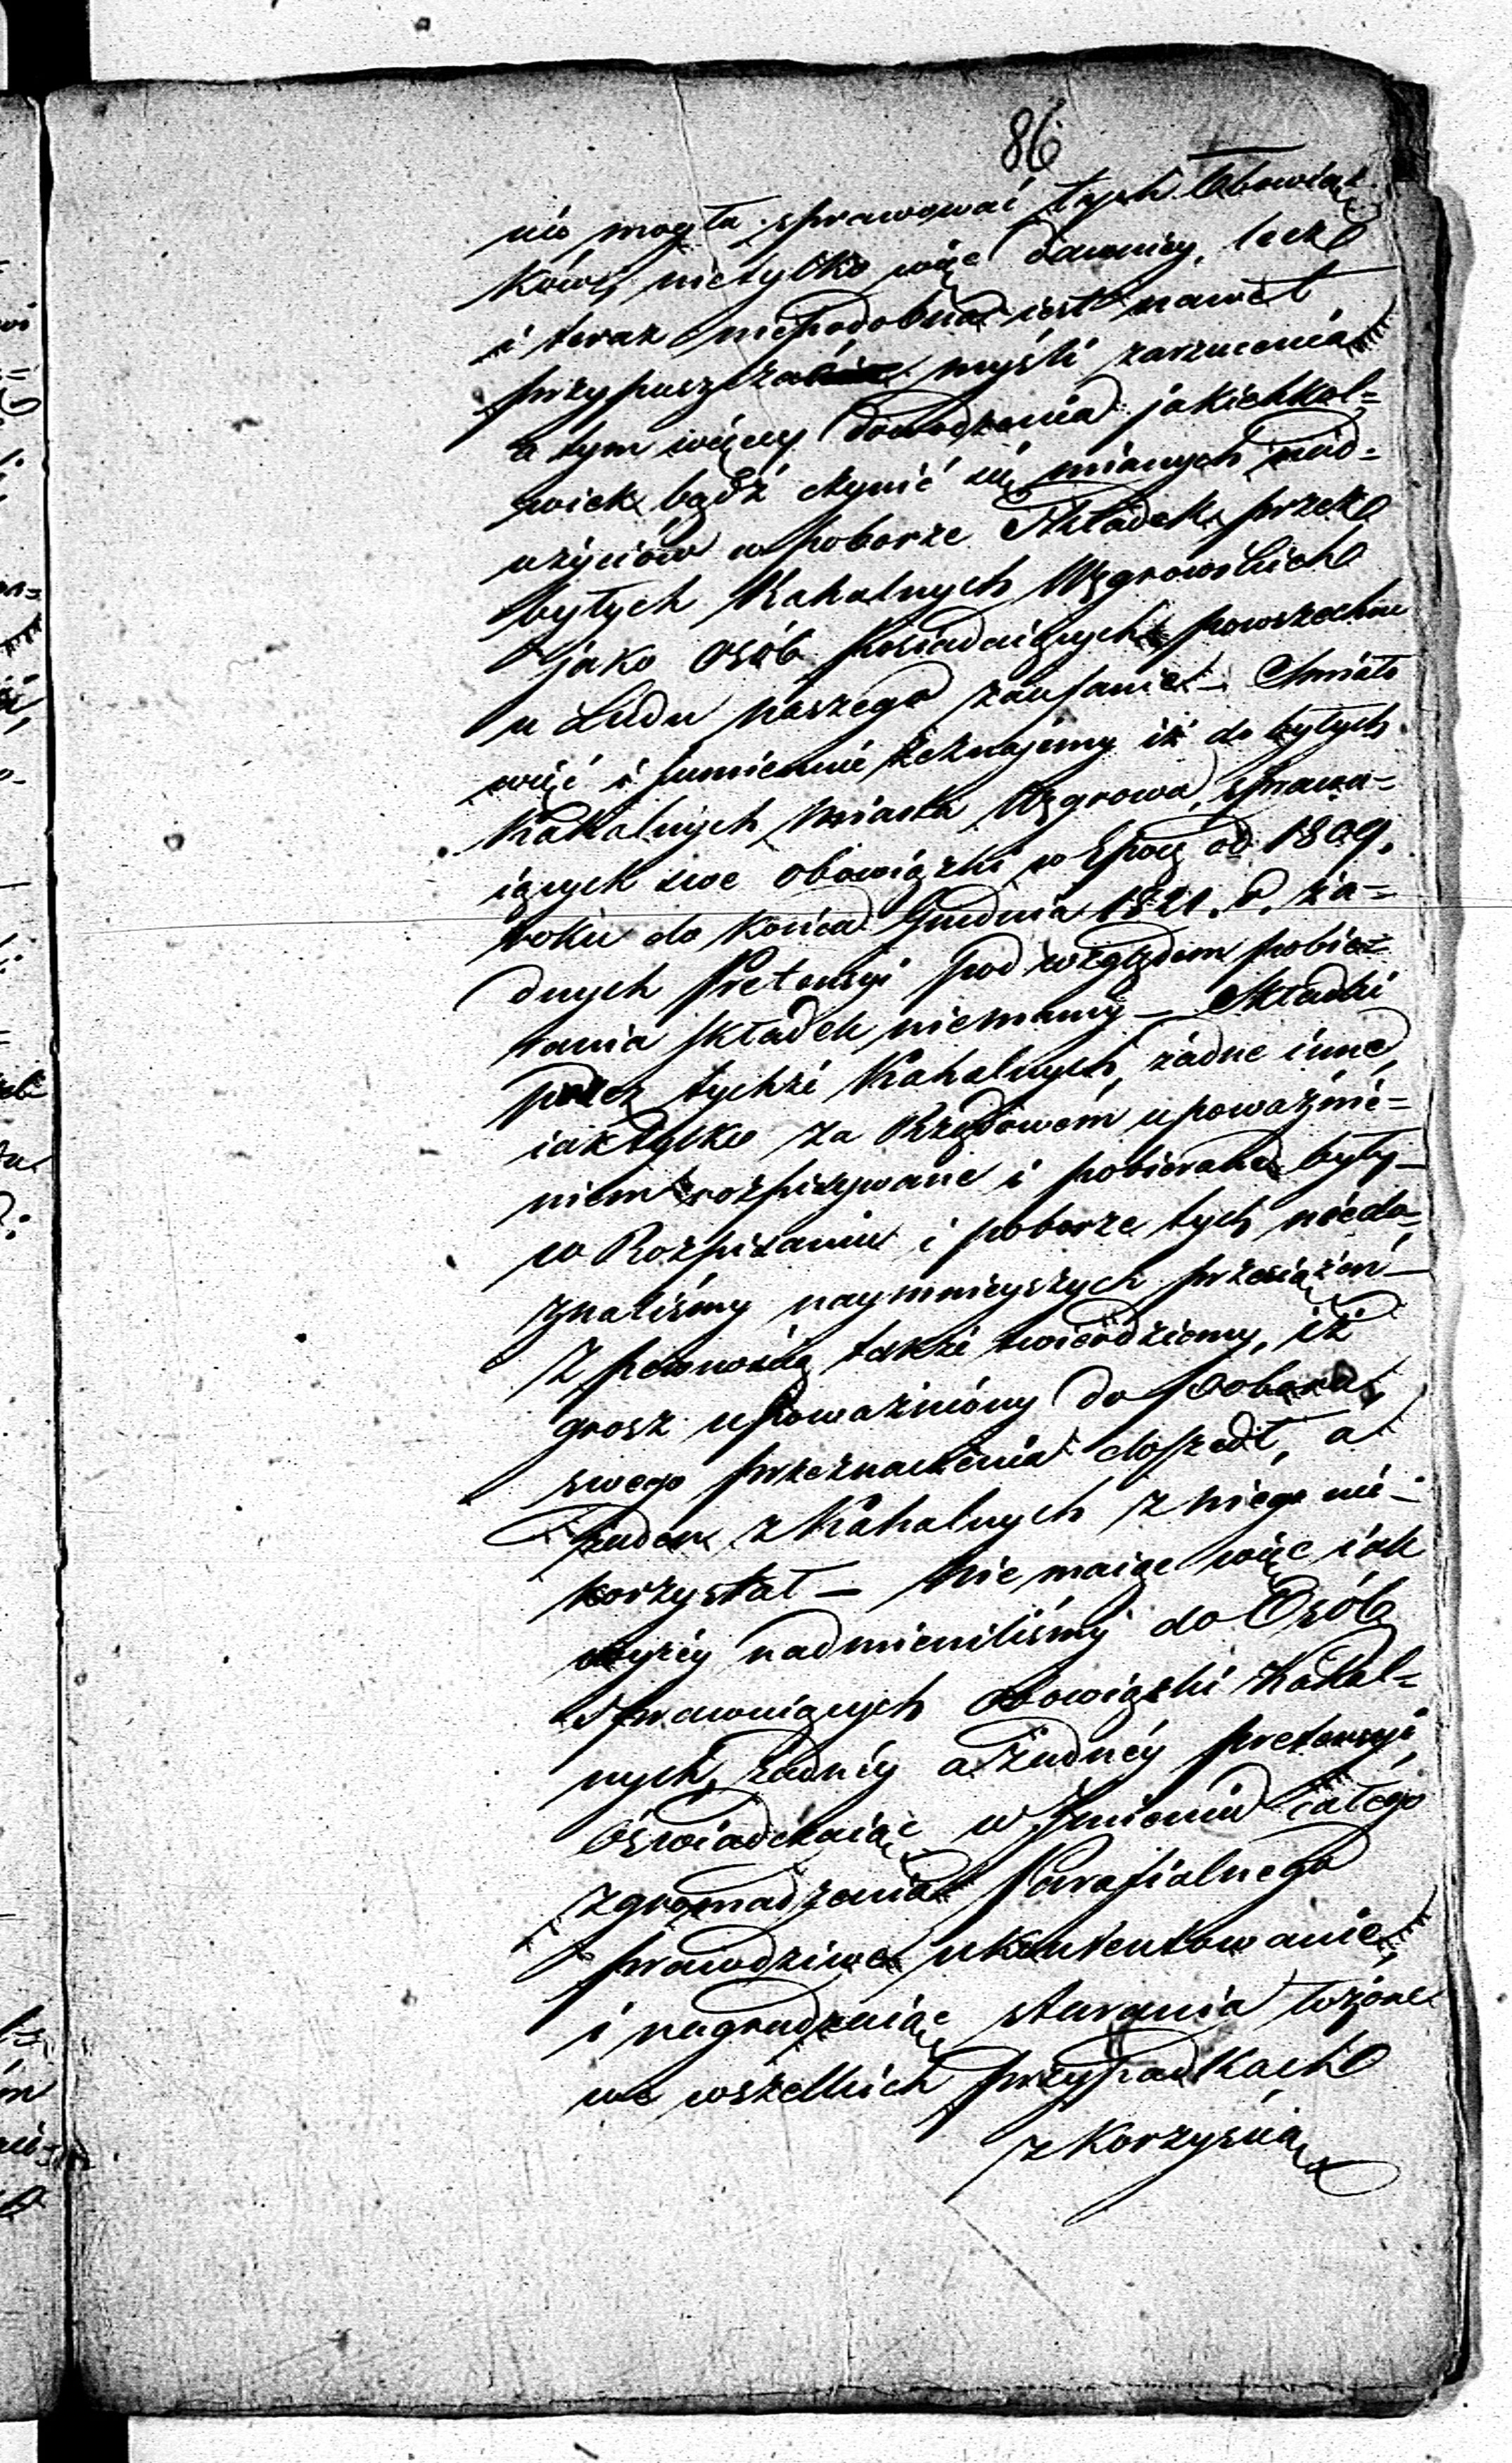 86
nie mogła sprawować tych Obowiąz
ków, nietylko więc dawniey, lecz
i teraz niepodobna iest nawet
przypuszcza myśli zarzucenia
a tym więcey dowodzenia jakichkol=
wiek bądź czynić się mianych nad=
użyciów w poborze Składek przez
byłych Kahalnych Węgrowskich
jako Osób posiadaiących powszechne
u Ludu naszego zaufanie – Smiało
więc i sumiennie zeznajemy iż do byłych
Kahalnych Miasta Węgrowa, sprawu=
iących swe obowiązki w Epocę od 1809.
roku do końca Grudnia 1821. r. ża=
dnych Pretensyi pod względem pobie=
rania składek niemamy – Składki
przez tychże Kahalnych, żadne inne,
iak tylko za Rządowém upoważnie=
niem rozpisywane i pobierane były –
w Rozpisaniu i poborze tych niedo=
znaliśmy naymnieyszych przeciążeń –
Z pewnością także twierdziemy, iż
grosz upoważniony do poboru,
swego przeznaczenia doszedł, a
żaden z Kahalnych z niego nie –
korzystał – Nie maiąc więc iak
wyżey nadmieniliśmy do Osób
sprawuiących obowiązki Kahal=
nych, żadnéy a żadnéy pretensyi,
Oświadczaiąc w Imieniu całego
zgromadzenia Parafialnego
prawdziwe ukontentowanie,
i nagradzaiąc starania łożone
we wszelkich przypadkach
z Korzyścią